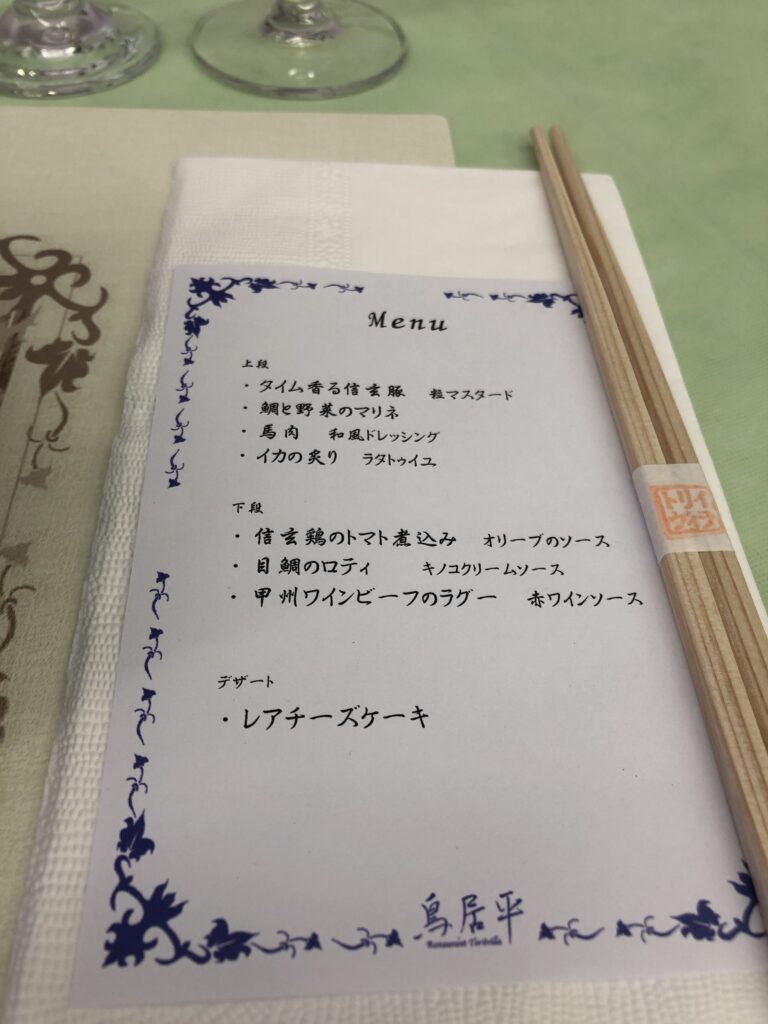 Menu
上段
・タイム香る信玄豚 粒マスタード
・鯛と野菜のマリネ
・馬肉 和風ドレッシング
・イカの炙り ラタトゥイユ
下段
・信玄鶏のトマト煮込み オリーブのソース
・目鯛のロティ キノコクリームソース
・甲州ワインビーフのラグー 赤ワインソース
デザート
・レアチーズケーキ
鳥居平
Restaurant Toriivilla
トリイ
ワイン